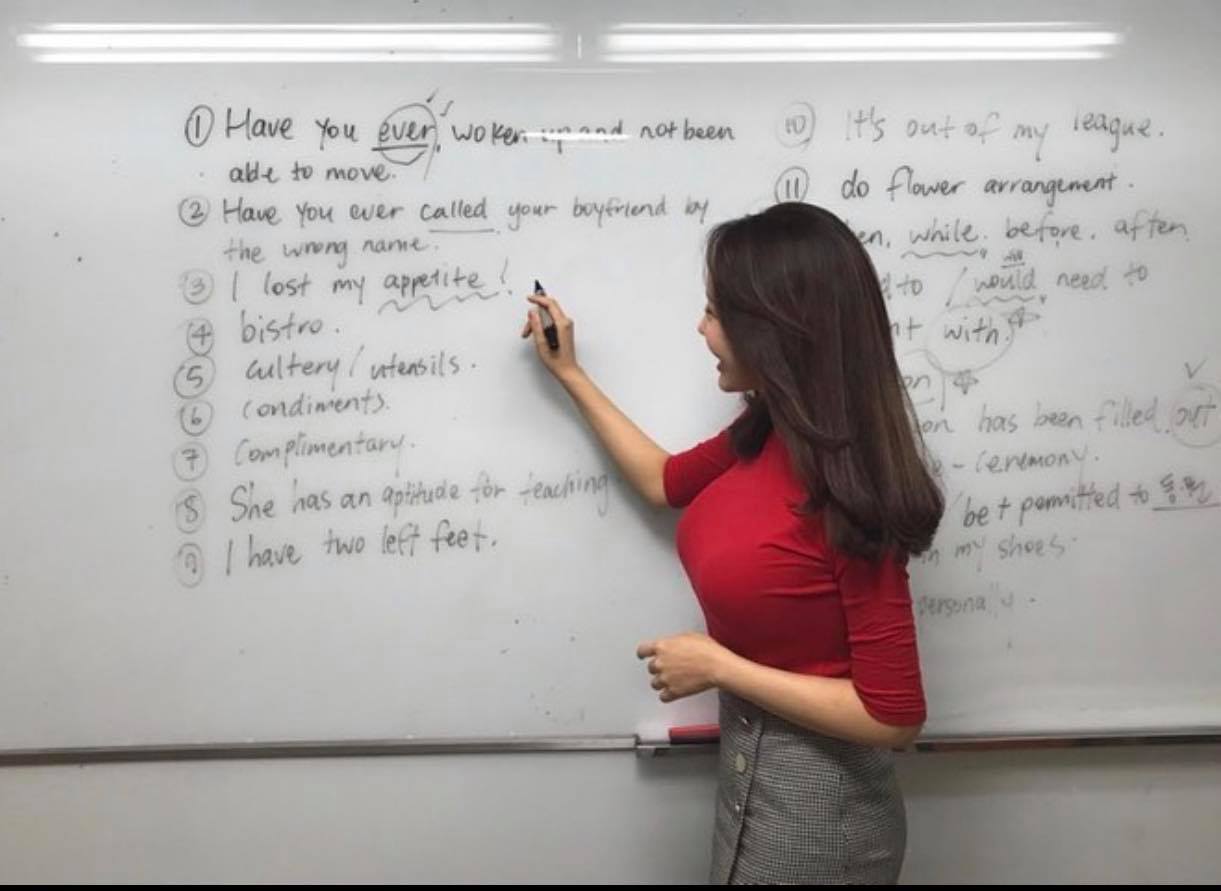 ① Have you ever, woken up and not been
able to move.
② Have you ever called your boyfriend by
the wrong name.
③ I lost my appetite!
④ bistro.
⑤ cultery / utensils.
⑥ condiments.
⑦ complimentary.
⑧ She has an aptitude for teaching
⑨ I have two left feet.
⑩ It's out of my league.
⑪ do flower arrangement.
while. before. after
to / would need to
with.
on
has been filled out
- ceremony.
be + permitted to 동.원
my shoes.
personally.